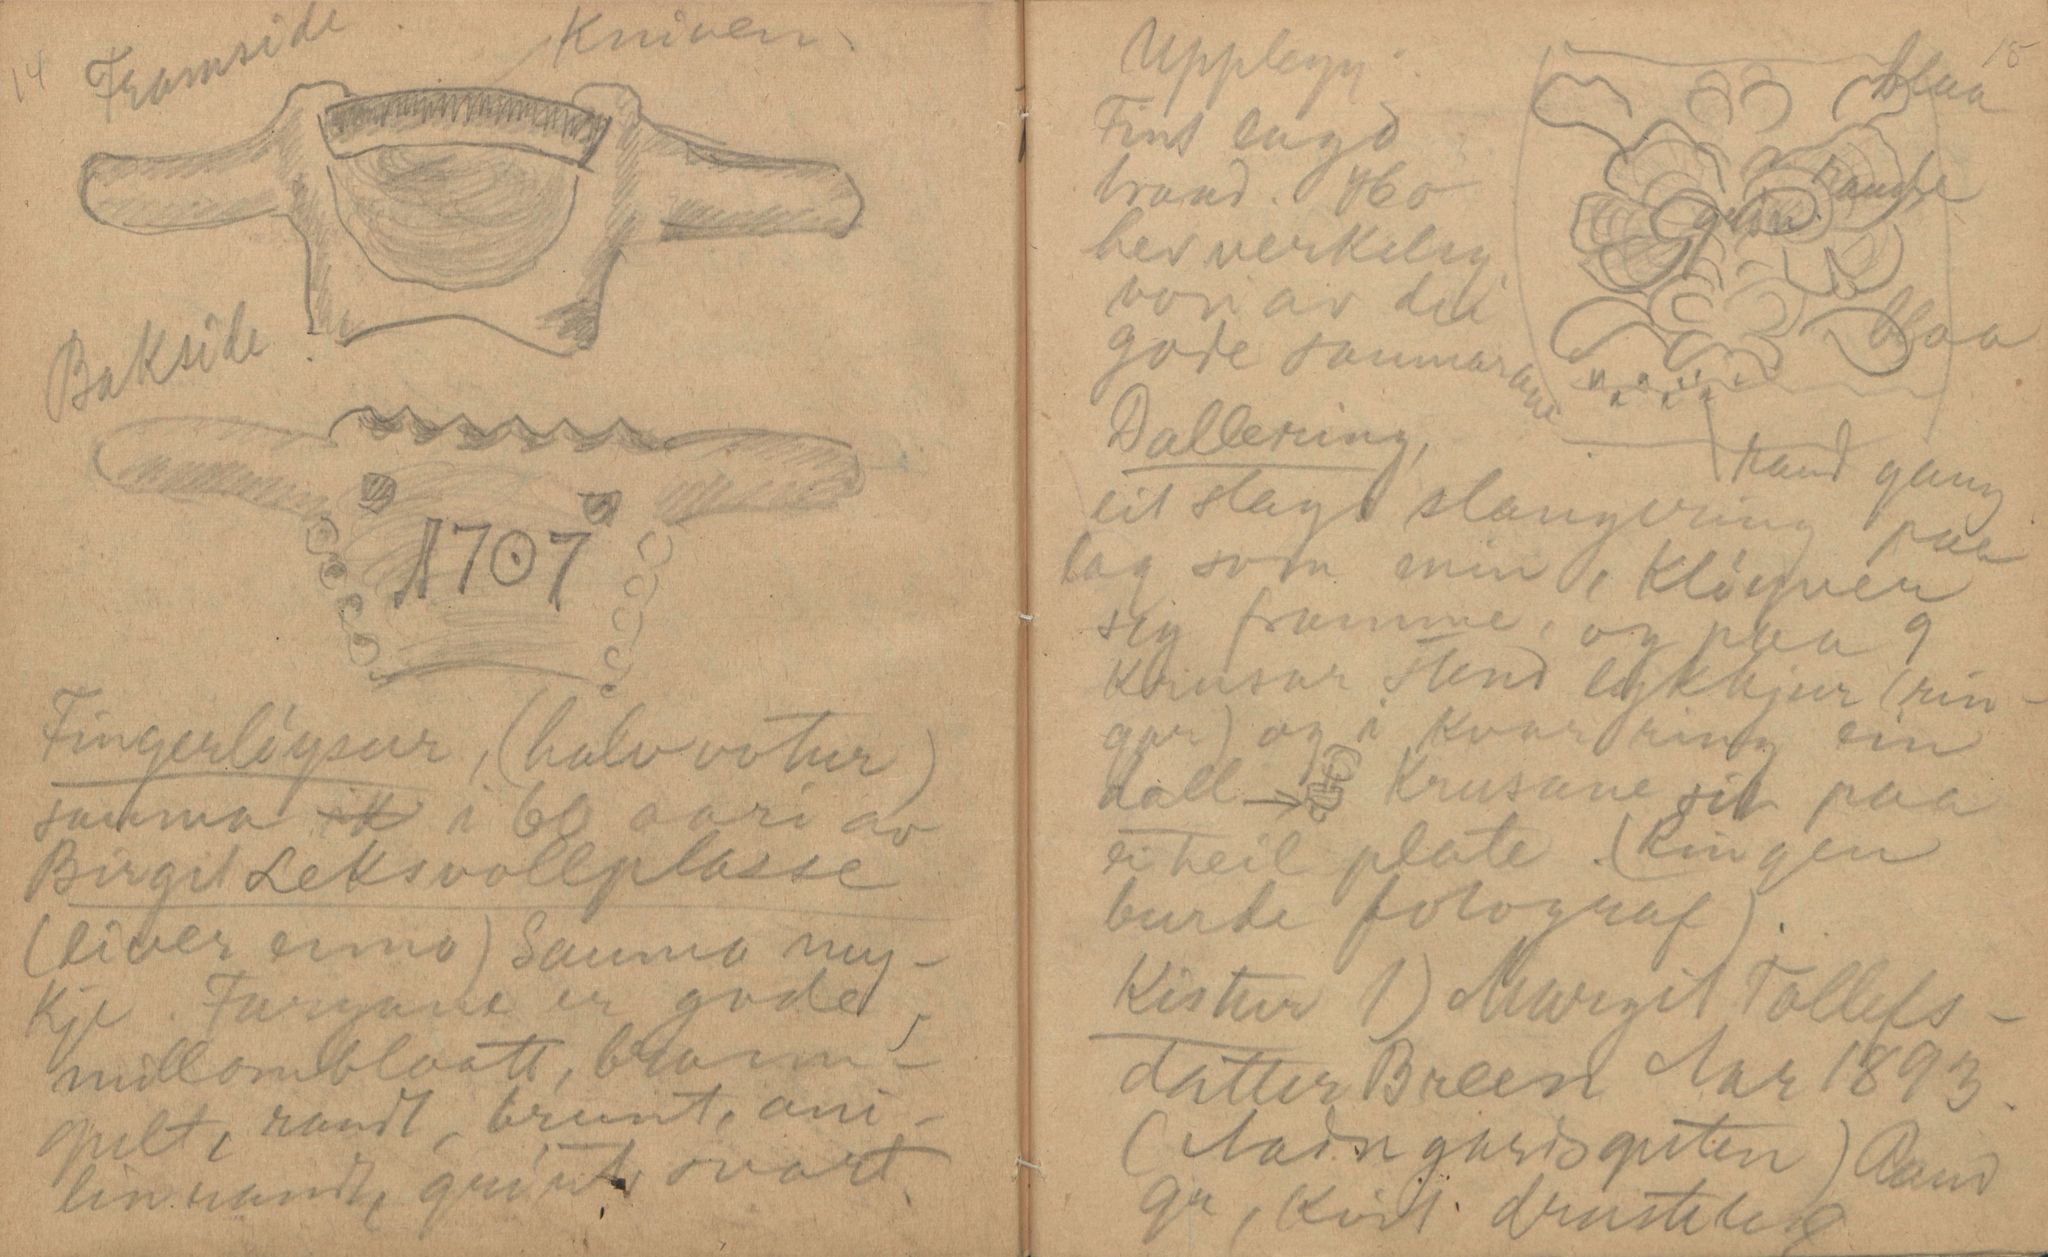 14
Framside
Kniven
Bakside
1707
Fingerløysur, (halvvotur)
sauma i 60 aari av
Birgit Leksvollplasse
(liver enno) Sauma my-
kje. Fargane er gode
millomblaatt, brann-
gult, raudt, brunt, ani-
linraudt, grønt, svart.
15
Upplegg:
Fint lagd
braad. Ho
hev verkeleg
vori av dei
gode saumarane
blaa
raude
gulen
blaa
raud gang
Dallering,
eit slags slangering paa
lag som min, kløyver
sig framme, og paa 9
krusar stend lykkjur (rin-
gar) og i kvar ring ein
dall → Krusane sit paa
ei heil plate. (Ringen
burde fotograf).
Kistur 1) Margit Tollefs-
datter Breen Aar 1893.
(Nadngardsguten) Raud
gr, kvit. drusteleg